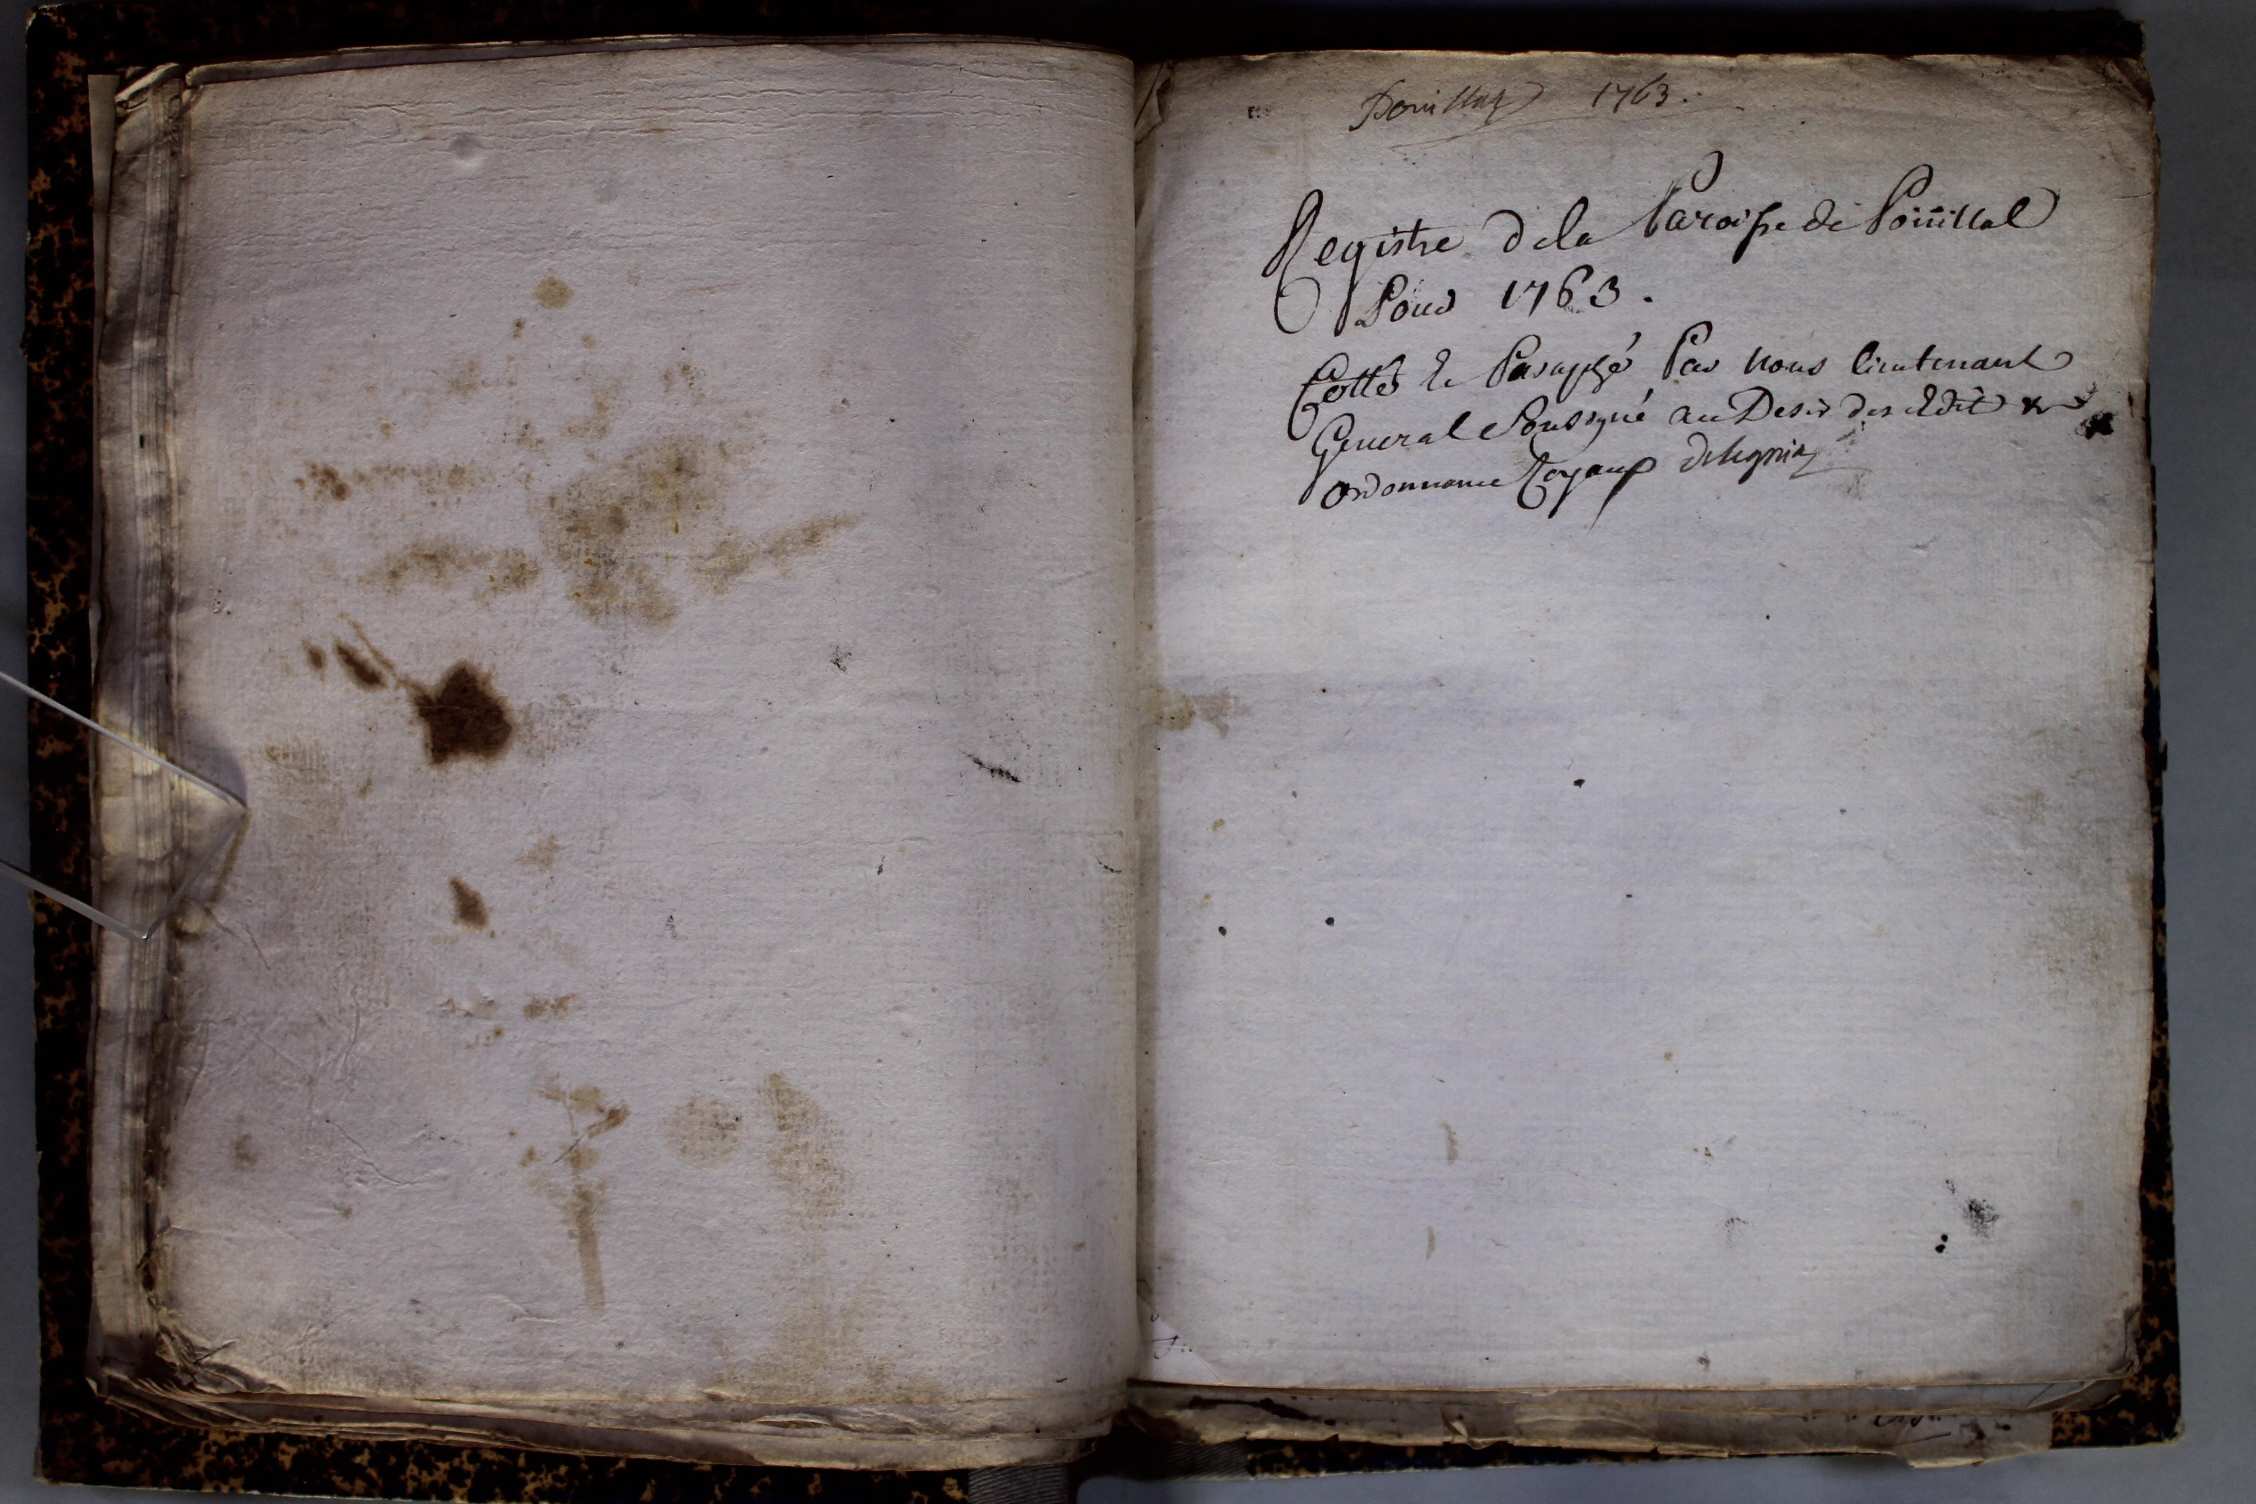 Pouillat 1763.
Registre dela Paroisse de Poüillat
Pour 1763.
Cotté et Paraphé Par nous lieutenant
General Soussigné au Desir des Edit et
ordonnance Royaux